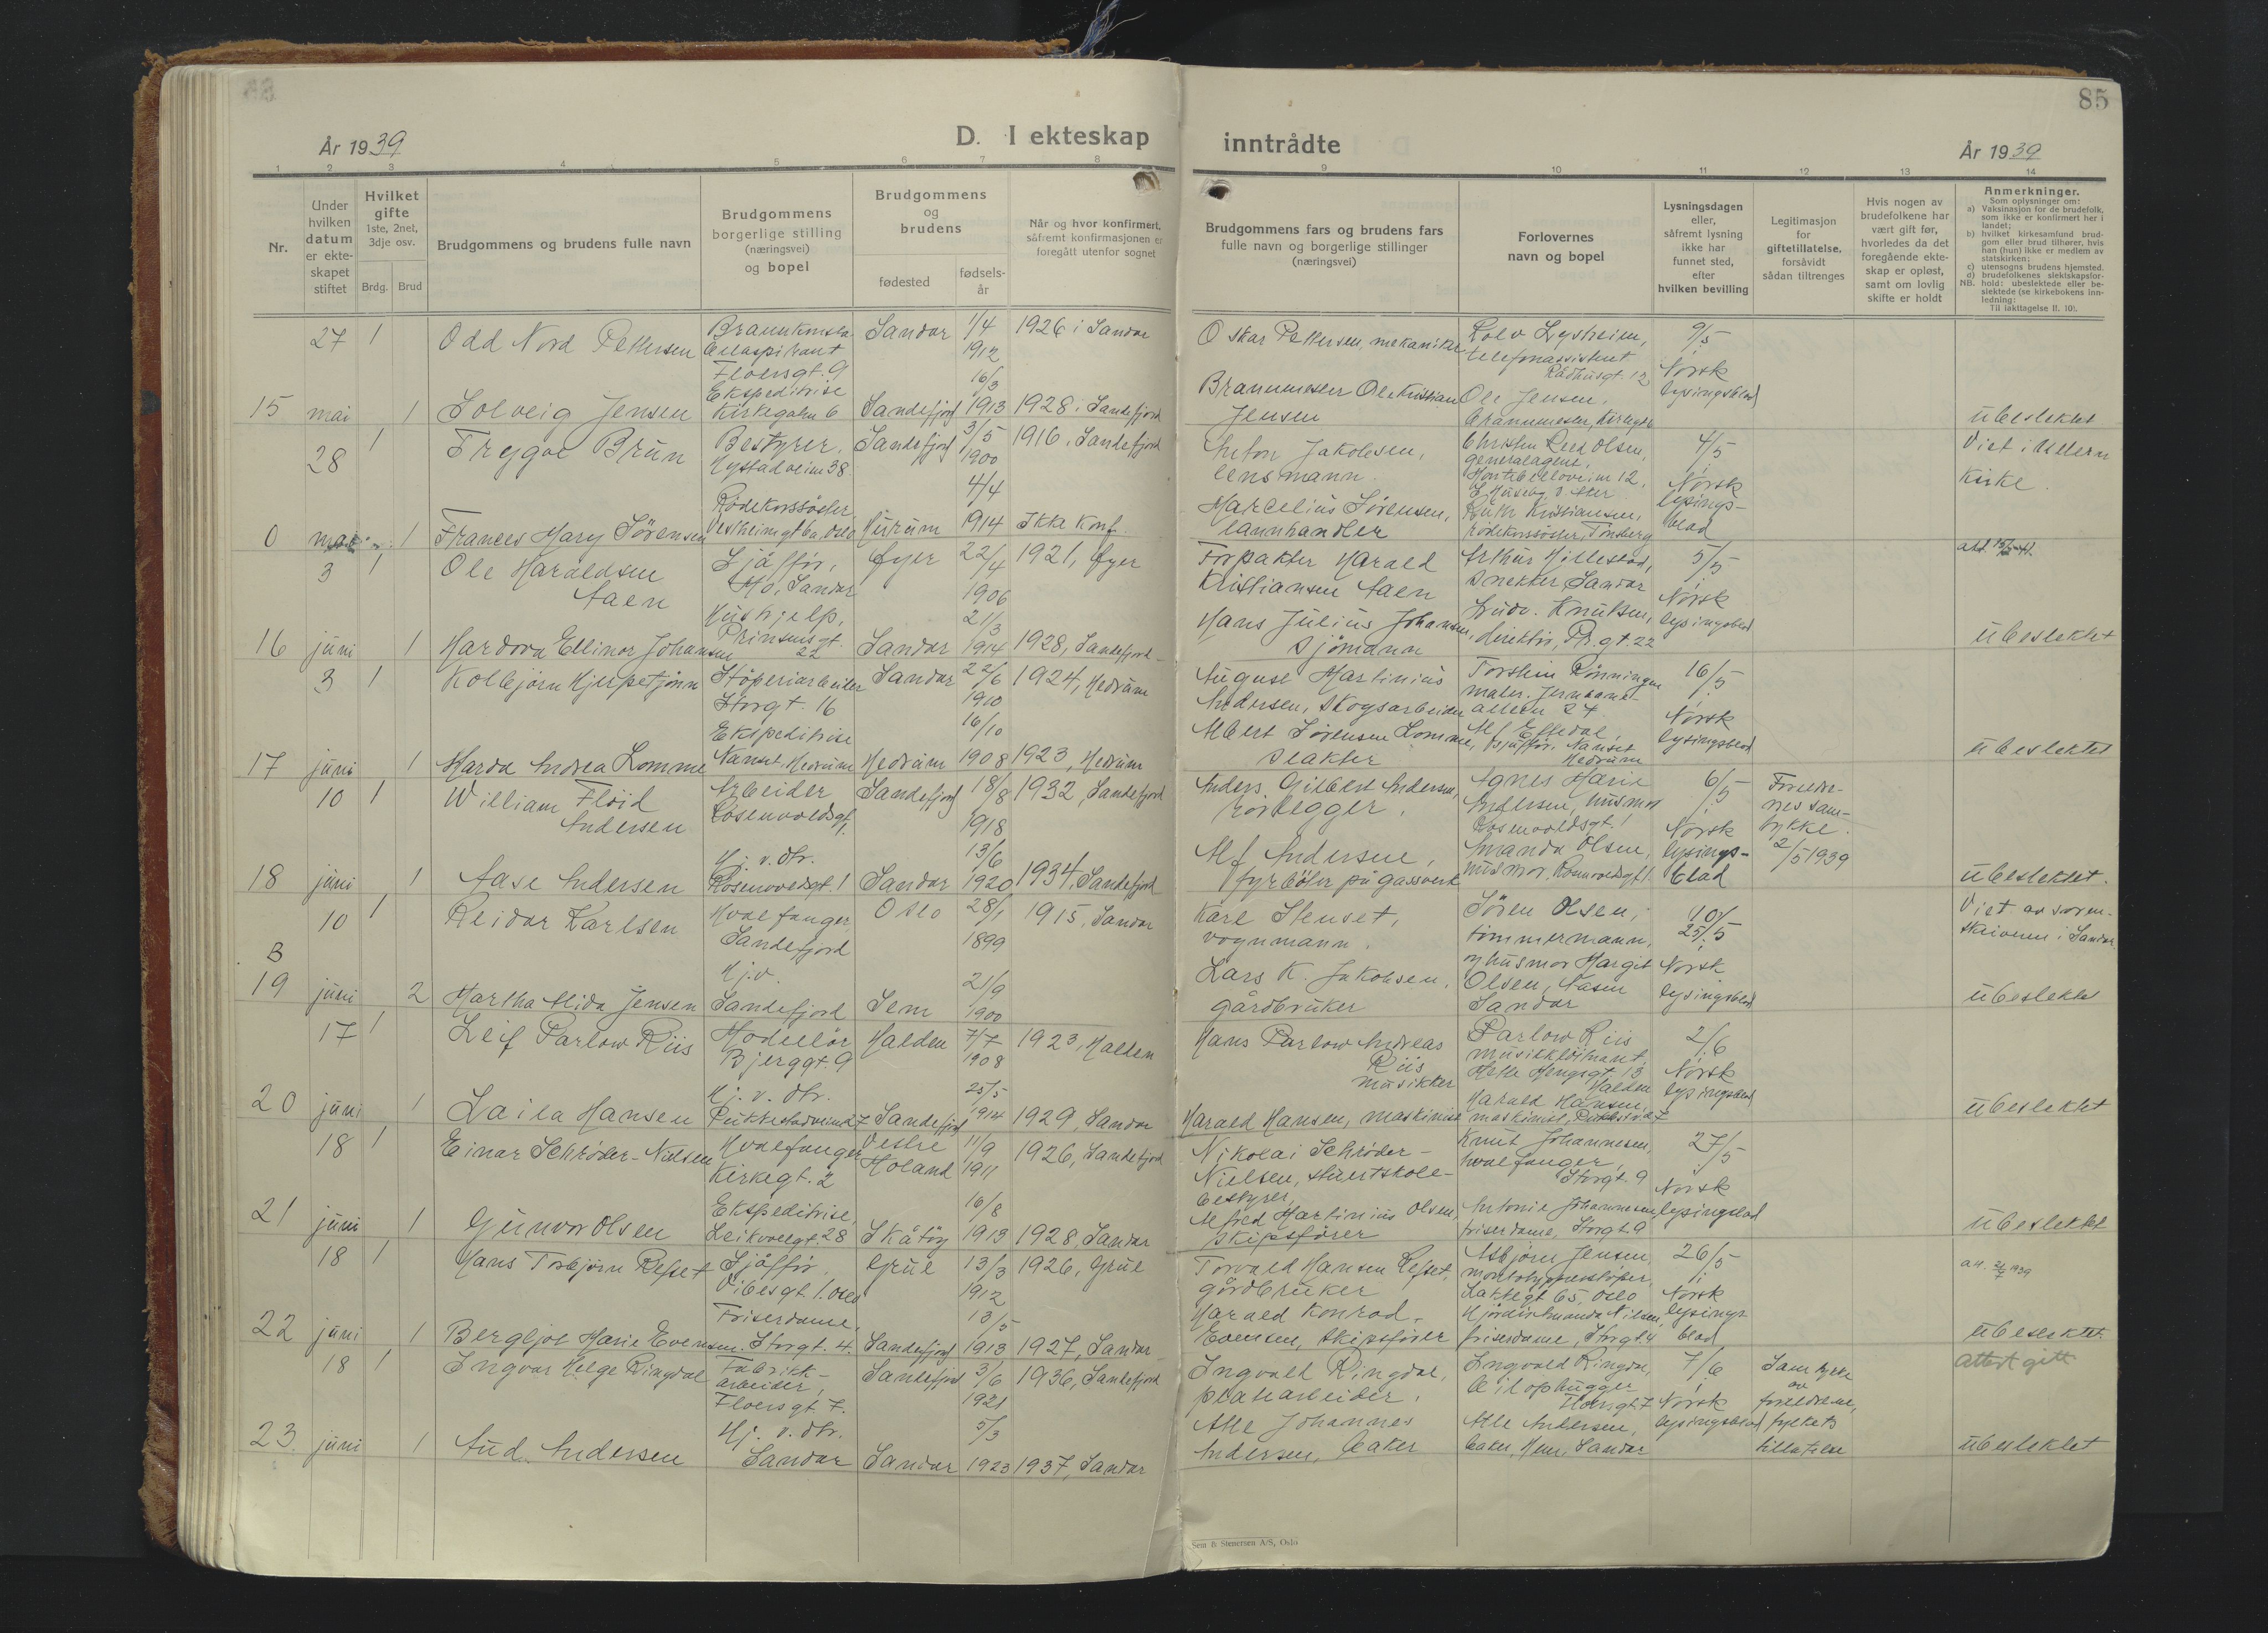 85
År 1939
D. I ekteskap
inntrådte
År 1939
1 2 3 4 5 6 7 8
9 10 11 12 13 14
Nr.
Under
hvilken
datum
er ekte-
skapet
stiftet
Hvilket
gifte
1ste, 2net,
3dje osv.
Brdg. Brud
Brudgommens og brudens fulle navn
Brudgommens
borgerlige stilling
(næringsvei)
og bopel
Brudgommens
og
brudens
fødested
fødsels-
år
Når og hvor konfirmert,
såfremt konfirmasjonen er
foregått utenfor sognet
Brudgommens fars og brudens fars
fulle navn og borgerlige stillinger
(næringsvei)
Forlovernes
navn og bopel
Lysningsdagen
eller,
såfremt lysning
ikke har
funnet sted,
efter
hvilken bevilling
Legitimasjon
for
giftetillatelse,
forsåvidt
sådan tiltrenges
Hvis nogen av
brudefolkene har
vært gift før,
hvorledes da det
foregående ekte-
skap er opløst,
samt om lovlig
skifte er holdt
Anmerkninger.
Som oplysninger om:
a) Vaksinasjon for de brudefolk,
som ikke er konfirmert her i
landet;
b) hvilket kirkesamfund brud-
gom eller brud tilhører, hvis
han (hun) ikke er medlem av
statskirken;
c) utensogns brudens hjemsted.
d) brudefolkenes slektskapsfor-
NB. hold: ubeslektede eller be-
slektede (se kirkebokens inn-
ledning:
Til iakttagelse II. 10).
27 1 Odd Nord Pettersen
Floersgt. 9
Sandar 1/4 1912 1926 i Sandar
Oskar Pettersen, mekaniker
Rolv Lysheim,
telefonassistent
Rådhusgt. 12
9/5
Norsk
lysingsblad
15 mai 1 Solveig Jensen
Ekspeditrise
Kirkegaten 6
Sandefjord 16/3 1913 1928 i Sandefjord
Brannmester Ole Kristian
Jensen
Ole Jensen,
ubeslektet
28 1 Trygve Brun
Bestyrer,
Hystadveien 38
Sandefjord 3/5 1900 1916, Sandefjord
Anton Jakobsen,
lensmann
Christen Reed Olsen,
generalagent,
Montebelloveien 12,
4/5
Norsk
lysings-
blad
Viet i Ullern
Kirke.
0 mai 1 Frances Mary Sörensen
Rödekorssöster
Vestheimgt 6a, Oslo
Hurum 4/4 1914 Ikke Konf.
Marcelius Sörensen,
rödekorssöster, Tönsberg
3 1 Ole Haraldsen
Aaen
Sjåför,
Mo, Sandar
Öyer 22/4 1906 1921, Öyer
Forpakter Harald
Kristiansen Aaen
Arthur Hillestad,
snekker Sandar
5/5
Norsk
lysingsblad
16 juni 1 Hardora Ellinor Johansen
Hushjelp,
Prinsensgt.
22
Sandar 21/3 1914 1928, Sandefjord
Hans Julius Johansen,
sjömann
Ludv. Knutsen,
direktör, Pr.gt. 22
ubeslektet
3 1 Kolbjörn Hjerpetjönn
Stöperiarbeider
Storgt. 16
Sandar 22/6 1910 1924, Hedrum
August Martinius
Andersen, skogsarbeider
Torstein Rönningen
maler, Jernbane-
alleen 24
16/5
Norsk
lysingsblad
17 juni 1 Marda Andrea Lomme
Ekspeditrise
Nanset, Hedrum
Hedrum 16/10 1908 1923, Hedrum
Albert Sörensen Lomme,
slakter
sjåför, Nanset
Hedrum
ubeslektet
10 1 William Flöid
Andersen
Arbeider
Rosenvoldsgt. 1
Sandefjord 18/8 1918 1932, Sandefjord
Anders Gilbert Andersen,
rörlegger.
Agnes Marie
Andersen, husmor
Rosenvoldsgt. 1
6/5
Norsk
lysings-
blad
Foreldre-
nes sam-
tykke.
2/5 1939
18 juni 1 Aase Andersen
Hj. v. dtr.
Rosenvoldsgt. 1
Sandar 13/6 1920 1934, Sandefjord
Alf Andersen,
fyrböter på gassverk
Amanda Olsen,
ubeslektet.
10 1 Reidar Karlsen
Hvalfanger
Sandefjord
Oslo 28/1 1899 1915, Sandar
Karl Stenset,
vognmann.
Sören Olsen,
tömmermann,
og husmor Margit
Olsen, Nasen
Sandar
10/
25/5
Norsk
lysingsblad
Viet av soren-
skriveren i Sandar.
B
19 juni 2 Martha Alida Jensen
Hj.v.
Sandefjord
Sem 21/9 1900
Lars K. Jakobsen,
gårdbruker
ubeslektet
17 1 Leif Parlow Riis
Modellör
Bjerggt. 9
Halden 7/7 1908 1923, Halden
Hans Parlow Andreas
Riis
musikker
Parlow Riis
musikklöitnant,
13
Halden
2/6
Norsk
lysingsblad
20 juni 1 Laila Hansen
Hj. v. dtr.
Pukkestadveien 27
Sandefjord 25/5 1914 1929, Sandar
Harald Hansen, maskinist
Harald Hansen,
maskinist,
ubeslektet
18 1 Einar Schröder-Nielsen
Hvalfanger
Kirkegt. 2
Vestre
Höland 11/9 1911 1926, Sandefjord
Nikolai Schröder-
Nielsen,
bestyrer
Knut Johannesen,
hvalfanger,
Storgt. 9
27/5
Norsk
lysingsblad
21 juni 1 Gunvor Olsen
Ekspeditrise,
Leikvollgt. 28
Skåtöy 16/8 1913 1928, Sandar
Alfred Martinius Olsen,
skipsförer
Antonie Johannesen
friserdame, Storgt. 9
ubeslektet
18 1 Hans Torbjörn Refset
Sjåför.
Vibesgt. 1. Oslo
Grue 13/3 1912 1926, Grue
Torvald Hansen Refset,
gårdbruker
Asbjörn Jensen,
Lakkegt 65, Oslo
26/5
Norsk
lysings
blad
22 juni 1 Bergljot Marie Evensen
Friserdame,
Storgt. 4.
Sandefjord 13/5 1913 1927, Sandar
Harald Konrad
Evensen, skipsförer
Hjördis Amanda Nilsen,
friserdame, Storgt. 4
ubeslektet.
18 1 Ingvar Helge Ringdal
Fabrikk-
arbeider,
Floersgt. 7.
Sandefjord 3/6 1921 1936, Sandefjord
Ingvald Ringdal,
platearbeider.
Ingvald Ringdal,
bilophugger
Floersgt. 7
7/6
Norsk
lysingsblad
Samtykke
av
foreldrene,
fylkets
tillatelse
attest gitt
23 juni 1 Aud Andersen
Hj. v. dtr.
Sandar
Sandar 5/3 1923 1937, Sandar
Atle Johannes
Andersen, baker
Atle Andersen,
baker, Sandar
ubeslektet
Sem & Stenersen A/S, Oslo